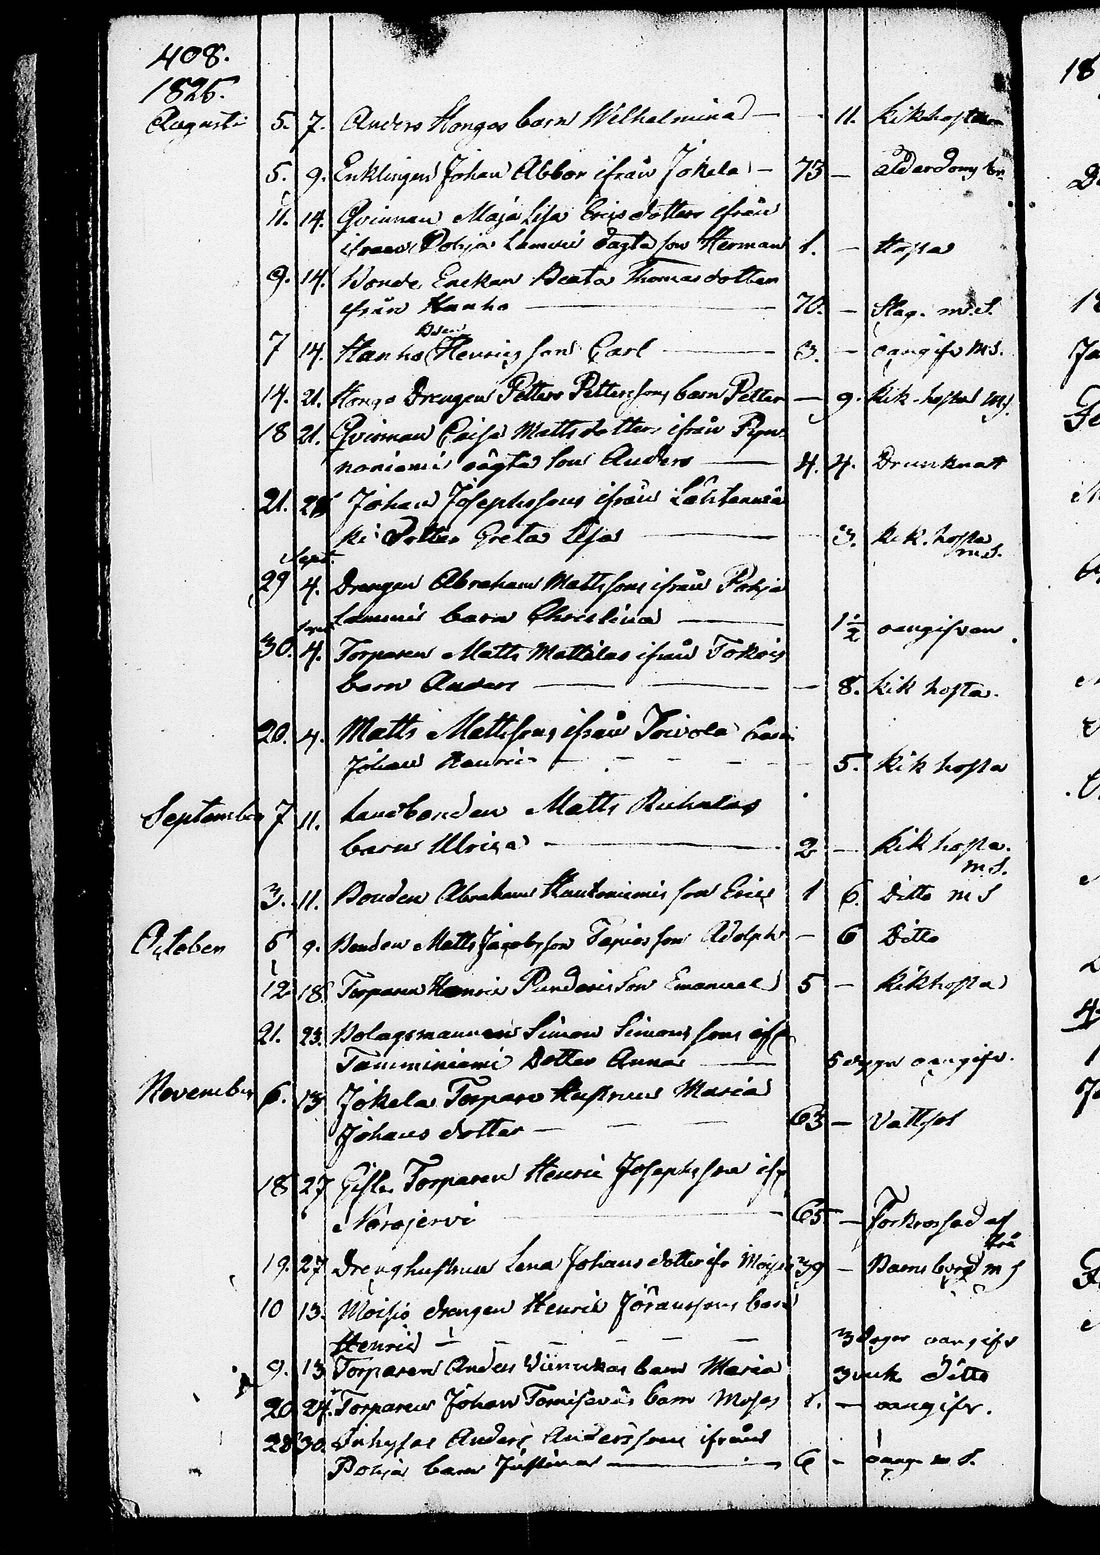 408.
1825.
Augusti 5. 7. Anders Hongos barn Wilhelmina — - 11. kikhosta
5. 9. Enklingen Johan Abbor ifrån Jokela — 73 — ålderdom
11. 14. Qvinnan Maja Lisa Ericsdotters ifrån
Pohja Lammi oägta son Herman 1. — Hosta
9. 14. Bonde Enckan Beata Thomasdotter
ifrån Hanho — 70. — Slag. m.S.
7 14. Hanho Henrics son Carl — 3. — oangifv m.S.
14. 21. Hongo Drengen Petter Petterssons barn Petter — 9. kik-hosta m.S.
18 21. Qvinnan Caisa Mattsdotters ifrån
oägta son Anders — 4. 4. Drunknat
21. 28 Johan Josephssons ifrån
ki Dotter Greta Lisa — 3. kik.hosta
m.S.
Sept.
29 4. Drengen Abraham Mattssons ifrån Pohja
Lammi barn Christina — 1½ oangifven
Sept.
30. 4. Torparen Matts Mattilas ifrån
barn Anders — — 8. kik hosta.
20. 4. Matts Mattssons ifrån Toivola barn
Johan Henric - - - 5. kik hosta
September 7 11. Landbonden Matts
barn Ulrica — 2 — kik hosta.
m.S.
3. 11. Bonden Abraham Hautoniemis son Eric 1 6. Ditto m S
October 6 9. Bonden Matts Jacobsson Tapios son Adolph — 6 Ditto
12 18 Torparen Henric son Emanuel 5 — kikhosta
21. 23. Bolagsmannen Simon Simonssons ifr
Tamminiemi Dotter Anna — 5 dygn oangifv.
November 6. 13 Jokela Torpare Hustrun Maria
Johansdotter — — — 63 — Vattsot
18 27 Gifte Torparen Henric Josephsson ifr
Narajervi — 65 — Förkrossad af
trä
19. 27 Dreng hustrun Lena Johansdotter ifr Moisio 39 — Barnsbörd m S
10 13. Moisio drengen Henric Jöranssons barn
Henric — 3 dagar oangifv
9. 13 Torparen Anders barn Maria 3 vik Ditto
20 24. Torparens Johan barn Moses 1. — oangifv.
28 30. Inhyses Anders Anderssons ifrån
Pohja barn Justina — 6 - oang m S.